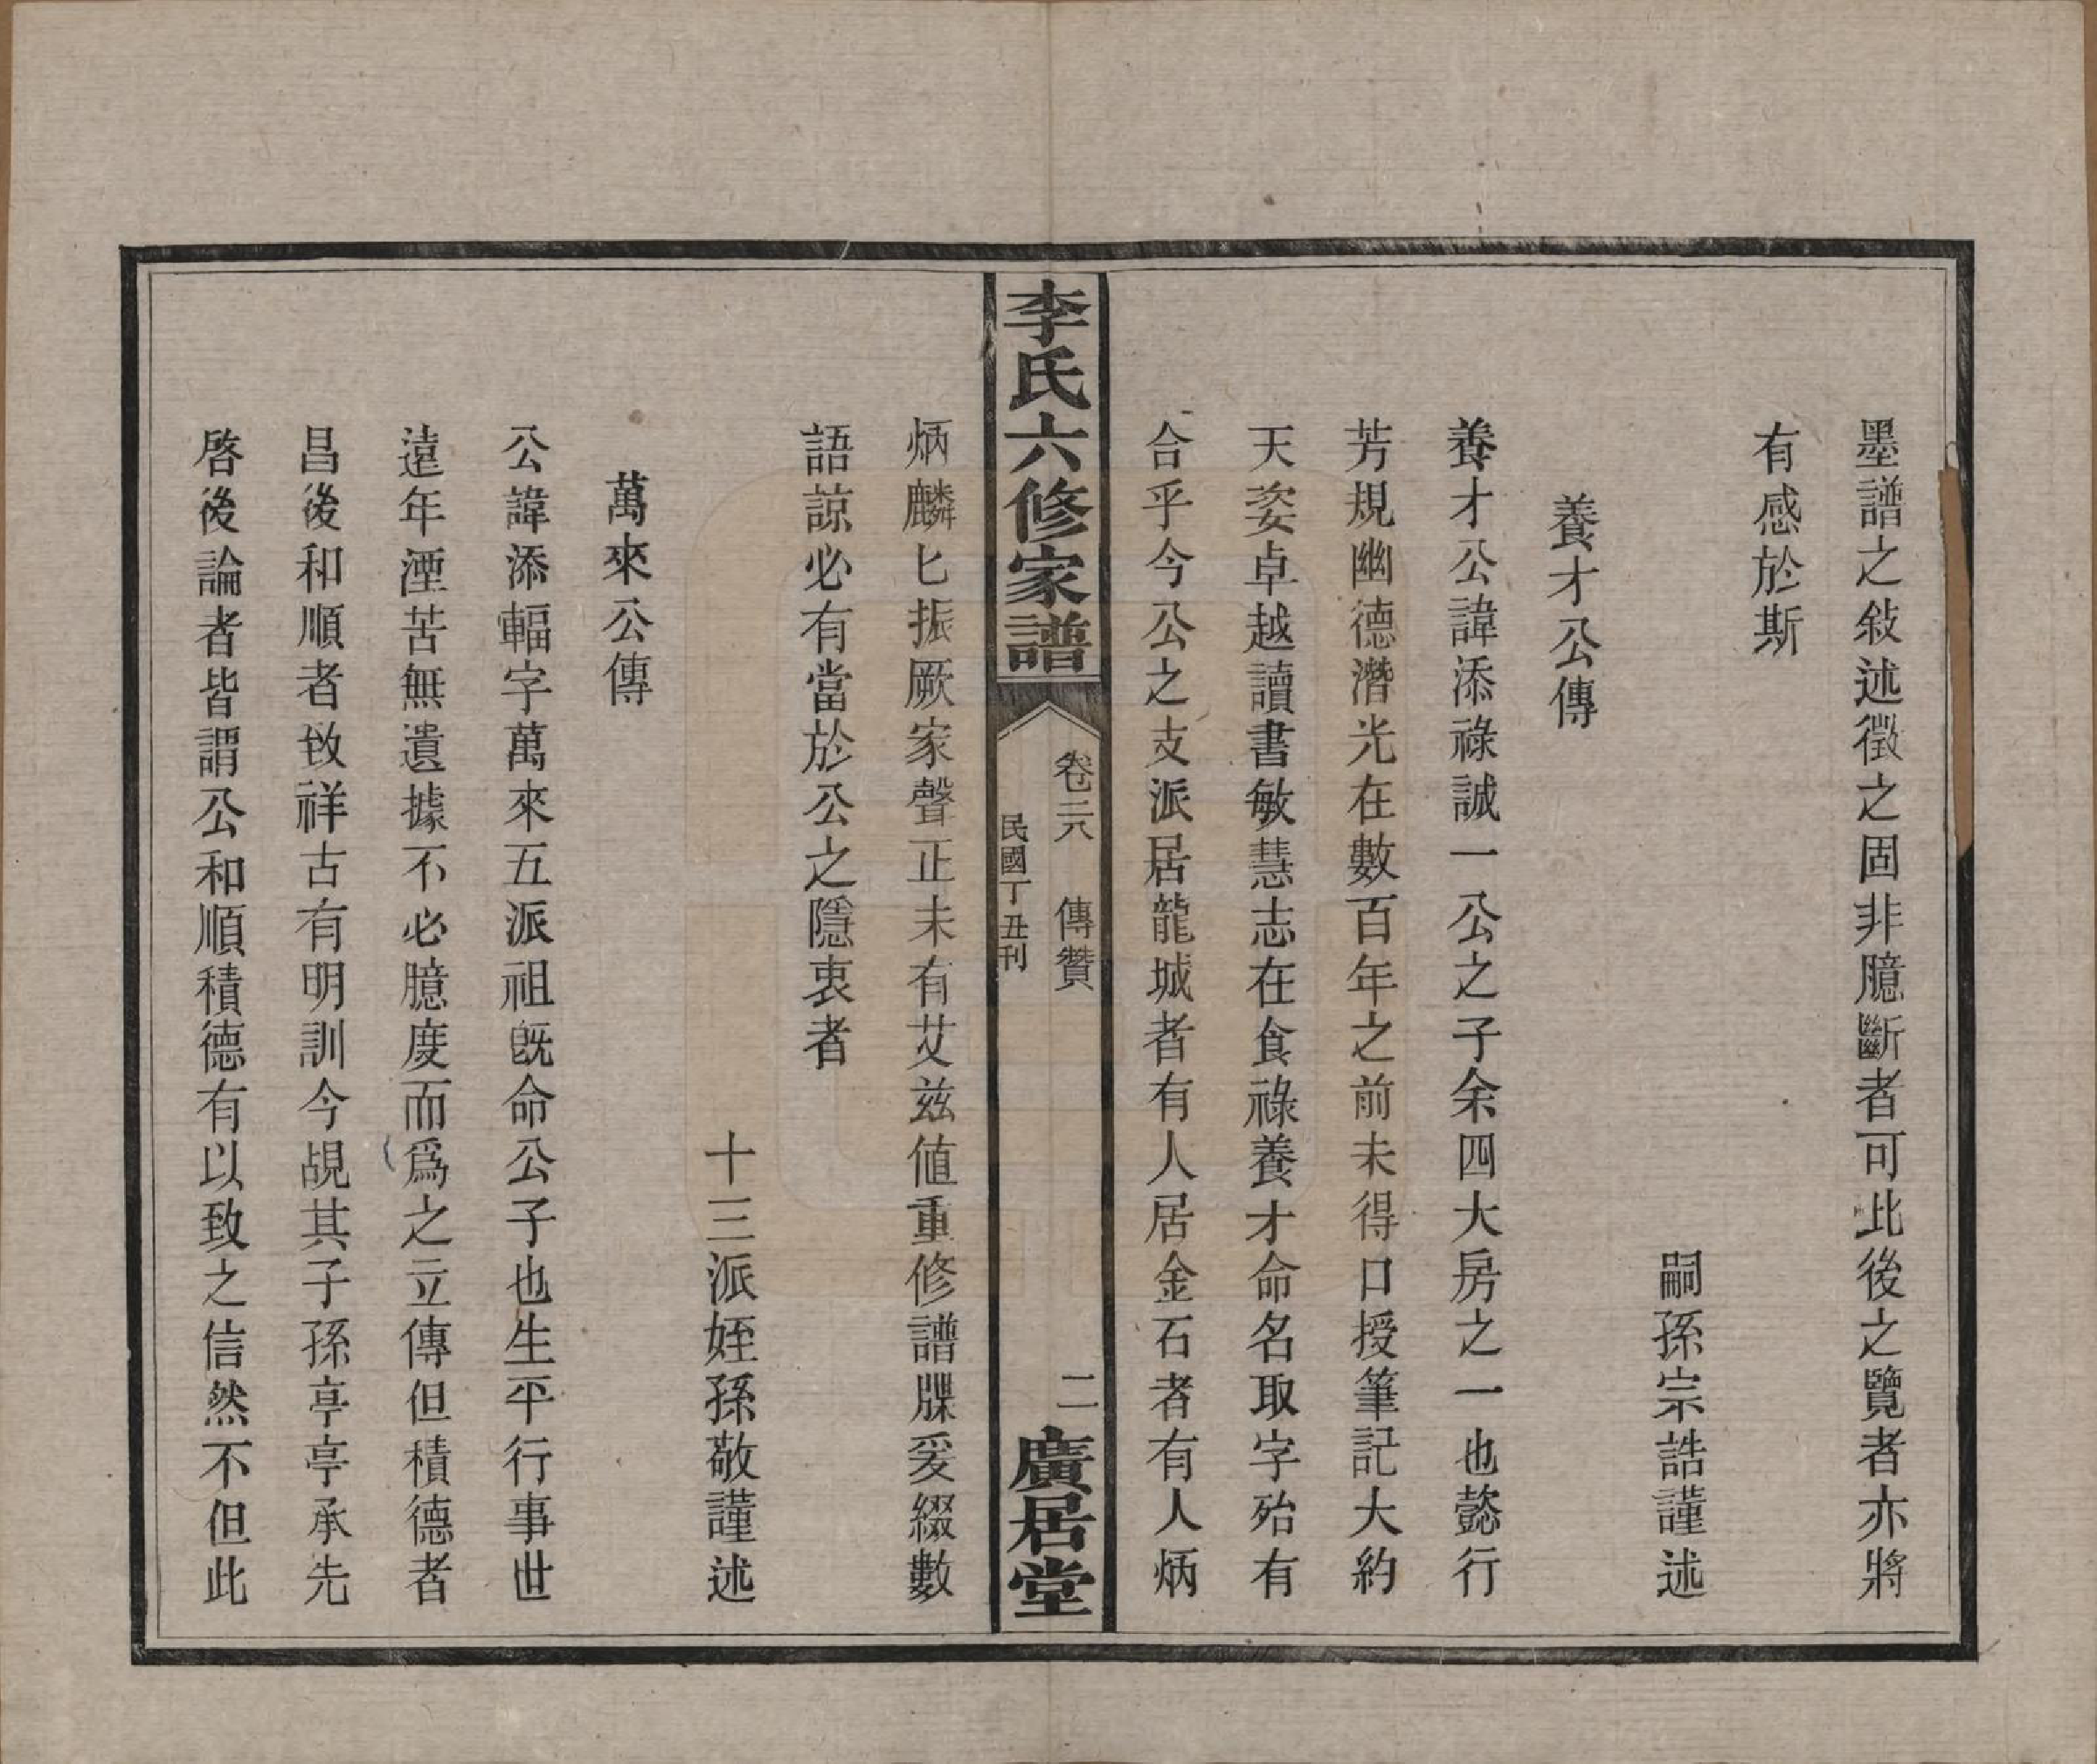 墨譜之敍述徵之固非臆斷者可此後之覽者亦將
有感於斯
嗣孫宗誥謹述
養才公傳
養才公諱添祿誠一公之子余四大房之一也懿行
芳規幽德潛光在數百年之前未得口授筆記大約
天姿卓越讀書敏慧志在食祿養才命名取字殆有
合乎今公之支派居龍城者有人居金石者有人炳
李氏六修家譜
卷二八 傳贊
民國丁丑刊
二
廣居堂
炳麟匕振厥家聲正未有艾茲值重修譜牒爰綴數
語諒必有當於公之隱衷者
十三派姪孫敬謹述
萬來公傳
公諱添輻字萬來五派祖旣命公子也生平行事世
遠年湮苦無遺據不必臆度而爲之立傳但積德者
昌後和順者致祥古有明訓今覘其子孫亭亭承先
啓後論者皆謂公和順積德有以致之信然不但此